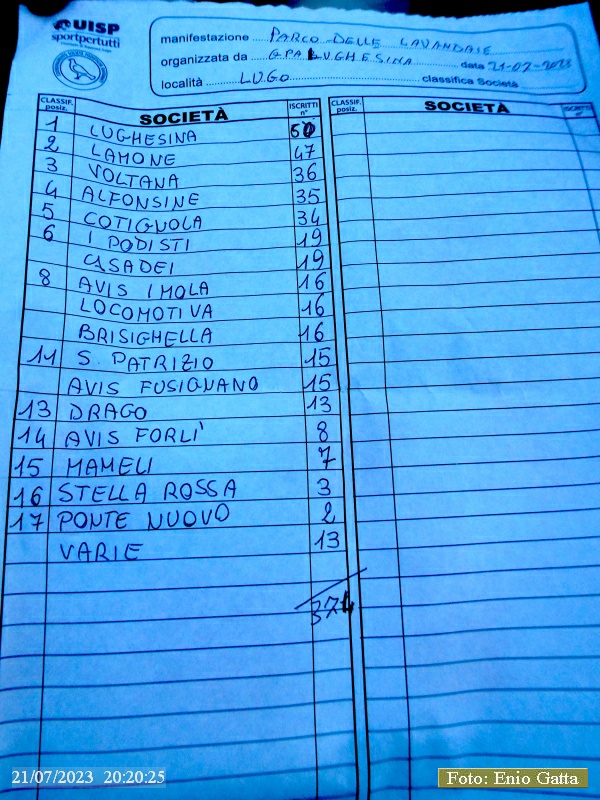 UISP
sportpertutti
manifestazione PARCO DELLE LAVANDAIE
organizzata da GPA LUGHESINA data 21-07-2023
località LUGO classifica Società
CLASSIF. posiz. SOCIETÀ ISCRITTI n° CLASSIF. posiz. SOCIETÀ ISCRITTI n°
1 LUGHESINA 60
2 LAMONE 47
3 VOLTANA 36
4 ALFONSINE 35
5 COTIGNOLA 34
6 I PODISTI 19
CASADEI 19
8 AVIS IMOLA 16
LOCOMOTIVA 16
BRISIGHELLA 16
11 S. PATRIZIO 15
AVIS FUSIGNANO 15
13 DRAGO 13
14 AVIS FORLI' 8
15 MAMELI 7
16 STELLA ROSSA 3
17 PONTE NUOVO 2
VARIE 13
374
21/07/2023 20:20:25
Foto: Enio Gatta